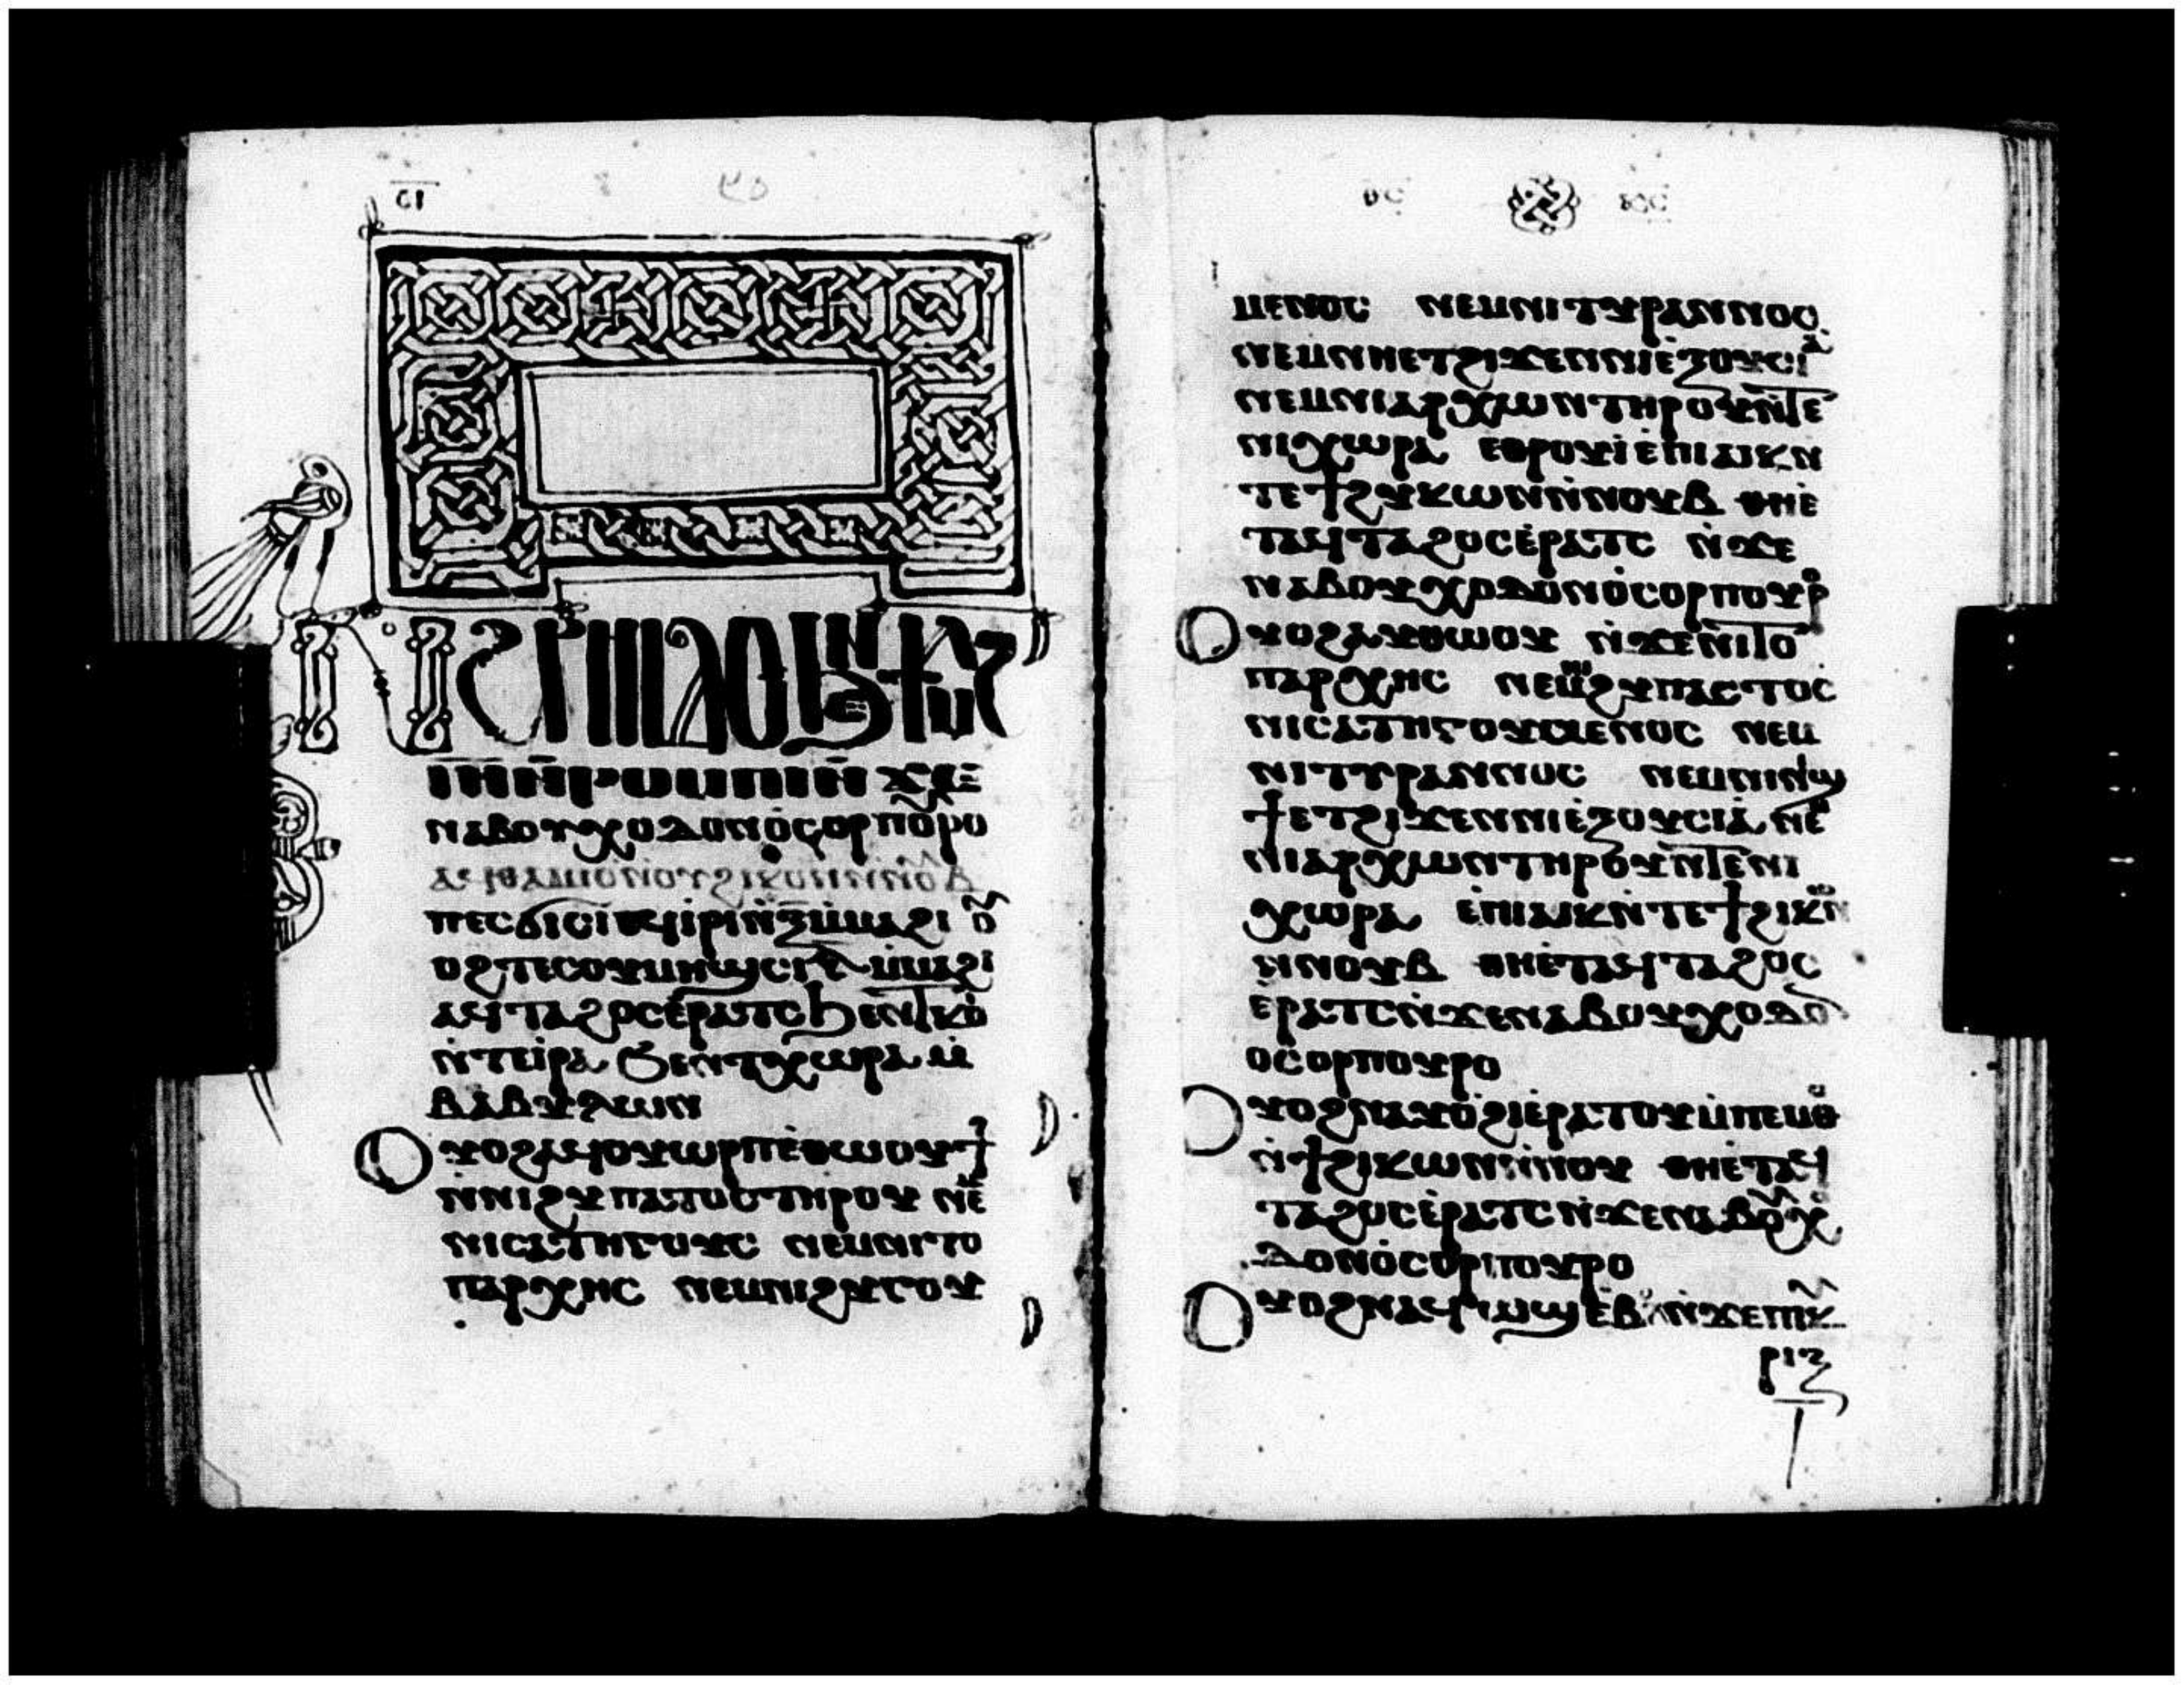 ⲛⲁⲃⲟⲩⲭⲟⲇⲟⲛⲟ̀ⲥⲟⲣⲡⲟ̅ⲣⲟ
ⲁϥⲑⲁⲙⲓⲟ̀ⲛⲟⲩϩⲓⲕⲱⲛⲛ̀ⲛⲟ̅ⲃ
ⲡⲉⲥϭⲓⲥⲓ ⲉϥⲓ̀ⲣⲓⲛ̀ⲝ̅ⲙ̀ⲙⲁϩⲓ ⲟ̅
ⲟϩⲡⲉⲥⲟⲩⲙⲏϣⲥⲓⲉ̅ ⲙ̀ⲙⲁϩⲓ
ⲁϥⲧⲁϩⲟⲥⲉ̀ⲣⲁⲧⲥϧⲉⲛⲧⲕⲟ
ⲛ̀ⲧⲉⲓ̀ⲣⲁ ϧⲉⲛⲧⲭⲱⲣⲁ ⲙ̀
ⲃⲁⲃⲩⲗⲱⲛ
ⲟⲩⲟϩⲁϥⲟⲩⲱⲣⲡⲉ̀ⲑⲱⲟⲩϯ
ⲛ̀ⲛⲓϩⲩⲡⲁⲧⲟⲥⲧⲏⲣⲟⲩ ⲛⲉ̅
ⲛⲓⲥⲁⲧⲏⲅⲟⲩⲥ ⲛⲉⲙⲛⲓⲧⲟ
ⲡⲁⲣⲭⲏⲥ ⲛⲉⲙⲛⲓϩⲩⲅⲟⲩ
ⲙⲉⲛⲟⲥ ⲛⲉⲙⲛⲓⲧⲩⲣⲁⲛⲛⲟⲥ
ⲛⲉⲙⲛⲏⲉⲧϩⲓϫⲉⲛⲛⲓⲉ̀ⲝⲟⲩⲥⲓⲁ̀
ⲛⲉⲙⲛⲓⲁⲣⲭⲱⲛⲧⲏⲣⲟⲩⲛ̀ⲧⲉ
ⲛⲓⲭⲱⲣⲁ ⲉⲑⲣⲟⲩⲓ̀ⲉ̀ⲡⲓⲁⲓⲕⲛ
ⲧⲉϯϩⲩⲕⲱⲛⲛ̀ⲛⲟⲩⲃ ⲑⲏⲉ̀
ⲧⲁϥⲧⲁϩⲟⲥⲉ̀ⲣⲁⲧⲥ ⲛ̀ϫⲉ
ⲛⲁⲃⲟⲩⲭⲟⲇⲟⲛⲟ̀ⲥⲟⲣⲡⲟⲩⲣⲟ
ⲟⲩⲟϩⲁⲩⲑⲱⲟⲩ ⲛ̀ϫⲉⲛⲓⲧⲟ
ⲡⲁⲣⲭⲏⲥ ⲛⲉⲙⲛⲓϩⲩⲡⲁⲥⲧⲟⲥ
ⲛⲓⲥⲁⲧⲏⲅⲟⲩⲙⲉⲛⲟⲥ ⲛⲉⲙ
ⲛⲓⲧⲩⲣⲁⲛⲛⲟⲥ ⲛⲉⲙⲛⲓⲛⲓϣ
ϯⲉⲧϩⲓϫⲉⲛⲛⲓⲉ̀ⲝⲟⲩⲥⲓⲁ̀ ⲛⲉ̅
ⲛⲓⲁⲣⲭⲱⲛⲧⲏⲣⲟⲩⲛ̀ⲧⲉⲛⲓ
ⲭⲱⲣⲁ ⲉ̀ⲡⲓⲁⲓⲕⲛ̀ⲧⲉϯϩⲓⲕⲱⲛ
ⲛ̀ⲛⲟⲩⲃ ⲑⲏⲉ̀ⲧⲁϥⲧⲁϩⲟⲥ
ⲉ̀ⲣⲁⲧⲥⲛ̀ϫⲉⲛⲁⲃⲟⲩⲭⲟⲇⲟ̅
ⲟ̀ⲥⲟⲣⲡⲟⲩⲣⲟ
ⲟⲩⲟϩⲛⲁⲩⲟ̀ϩⲓⲉ̀ⲣⲁⲧⲟⲩⲙ̀ⲡⲉⲙⲑⲟ
ⲛ̀ϯϩⲓⲕⲱⲛⲛ̀ⲛⲟⲩ ⲑⲏⲉ̀ⲧⲁϥ
ⲧⲁϩⲟⲥⲉ̀ⲣⲁⲧⲥ ⲛ̀ϫⲉⲛⲁⲃⲟ̅ⲭⲟ
ⲇⲟⲛⲟ̀ⲥⲟⲣⲡⲟⲩⲣⲟ
ⲟⲩⲟϩⲛⲁϥⲱϣⲉ̀ⲃⲟⲗⲛ̀ϫⲉⲡⲓⲕ
ⲣⲓⲝ